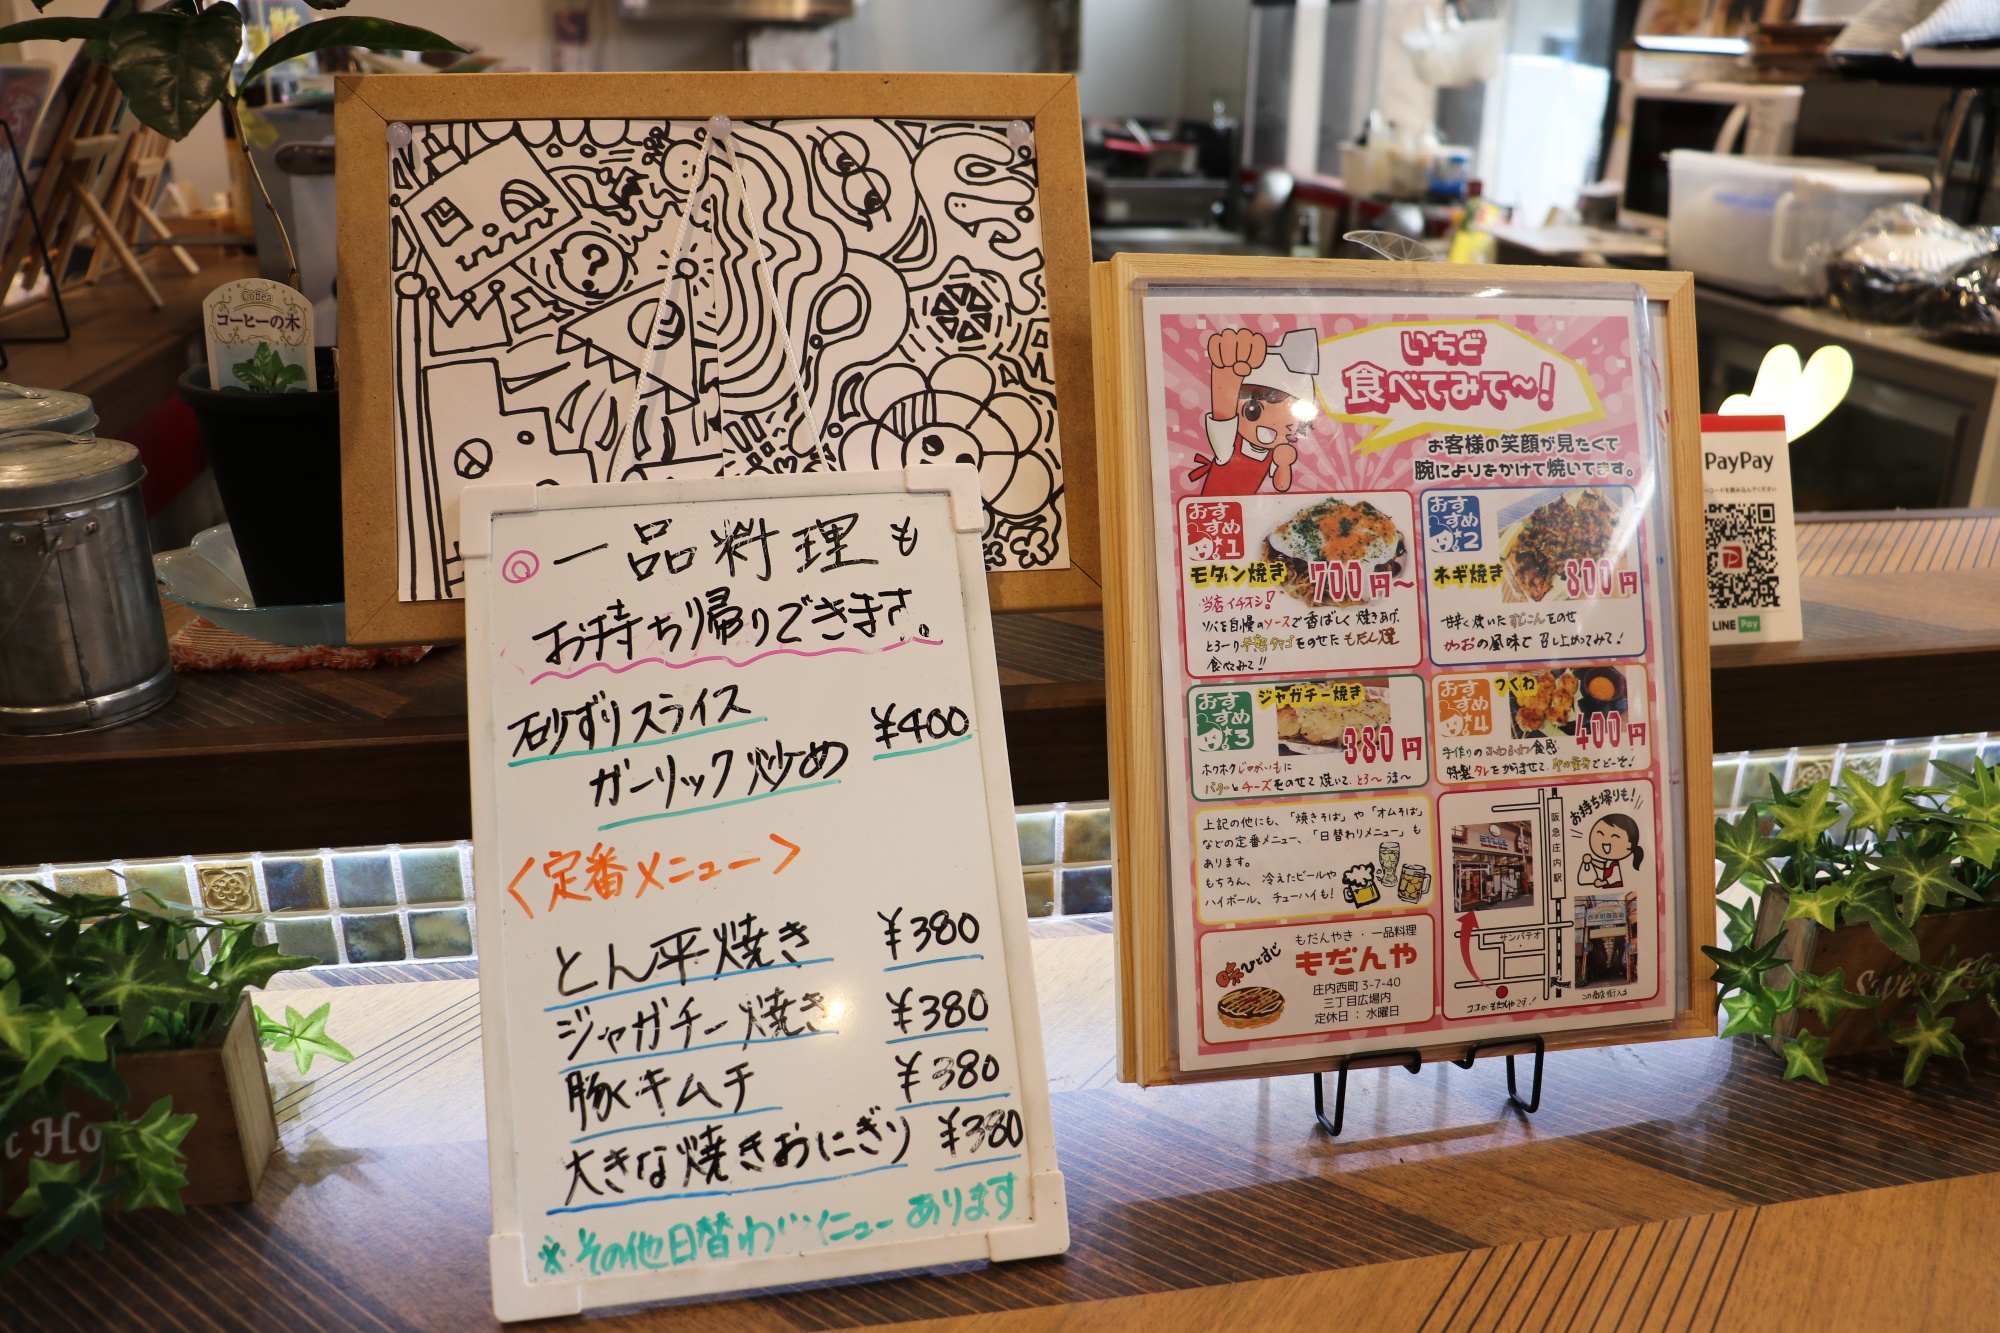 Coffea
コーヒーの木
?
◎一品料理も
お持ち帰りできます。
砂ずりスライス
ガーリック炒め ¥400
<定番メニュー>
とん平焼き ¥380
ジャガチー焼き ¥380
豚キムチ ¥380
大きな焼きおにぎり ¥380
※その他日替わりメニューあります
いちど
食べてみて～!
お客様の笑顔が見たくて
腕によりをかけて焼いてます。
おすすめ1
モダン焼き 700円～
当店イチオシ!
ソバを自慢のソースで香ばしく焼きあげ、
とろーり半熟タマゴをのせたもだん焼
食べてみて!!
おすすめ2
ネギ焼き 800円
甘辛く焼いたすじこんをのせ
かつおの風味で召し上がってみて!
おすすめ3
ジャガチー焼き
380円
ホクホクじゃがいもに
バターとチーズをのせて焼いて、とろ～うま～
おすすめ4
つくわ
400円
手作りのふわふわ食感
特製タレをからませて、卵の黄身でどーぞ!
上記の他にも、「焼きそば」や「オムそば」
などの定番メニュー、「日替わりメニュー」も
あります。
もちろん、冷えたビールや
ハイボール、チューハイも!
お持ち帰りも!
阪急庄内駅
サンパティオ
ココがもだんやです!
この商店街入る
もだんやき・一品料理
味ひとすじ
もだんや
庄内西町3-7-40
三丁目広場内
定休日：水曜日
PayPay
LINE Pay